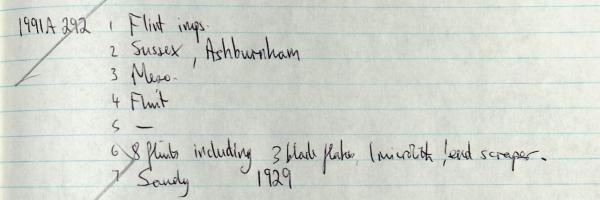 1991A 292 1 Flint imps.
2 Sussex, Ashburnham
3 Meso.
4 Flint
5 —
6 8 flints including 3 blade flakes, 1 microlith, 1 end scraper.
7 Sandy 1929